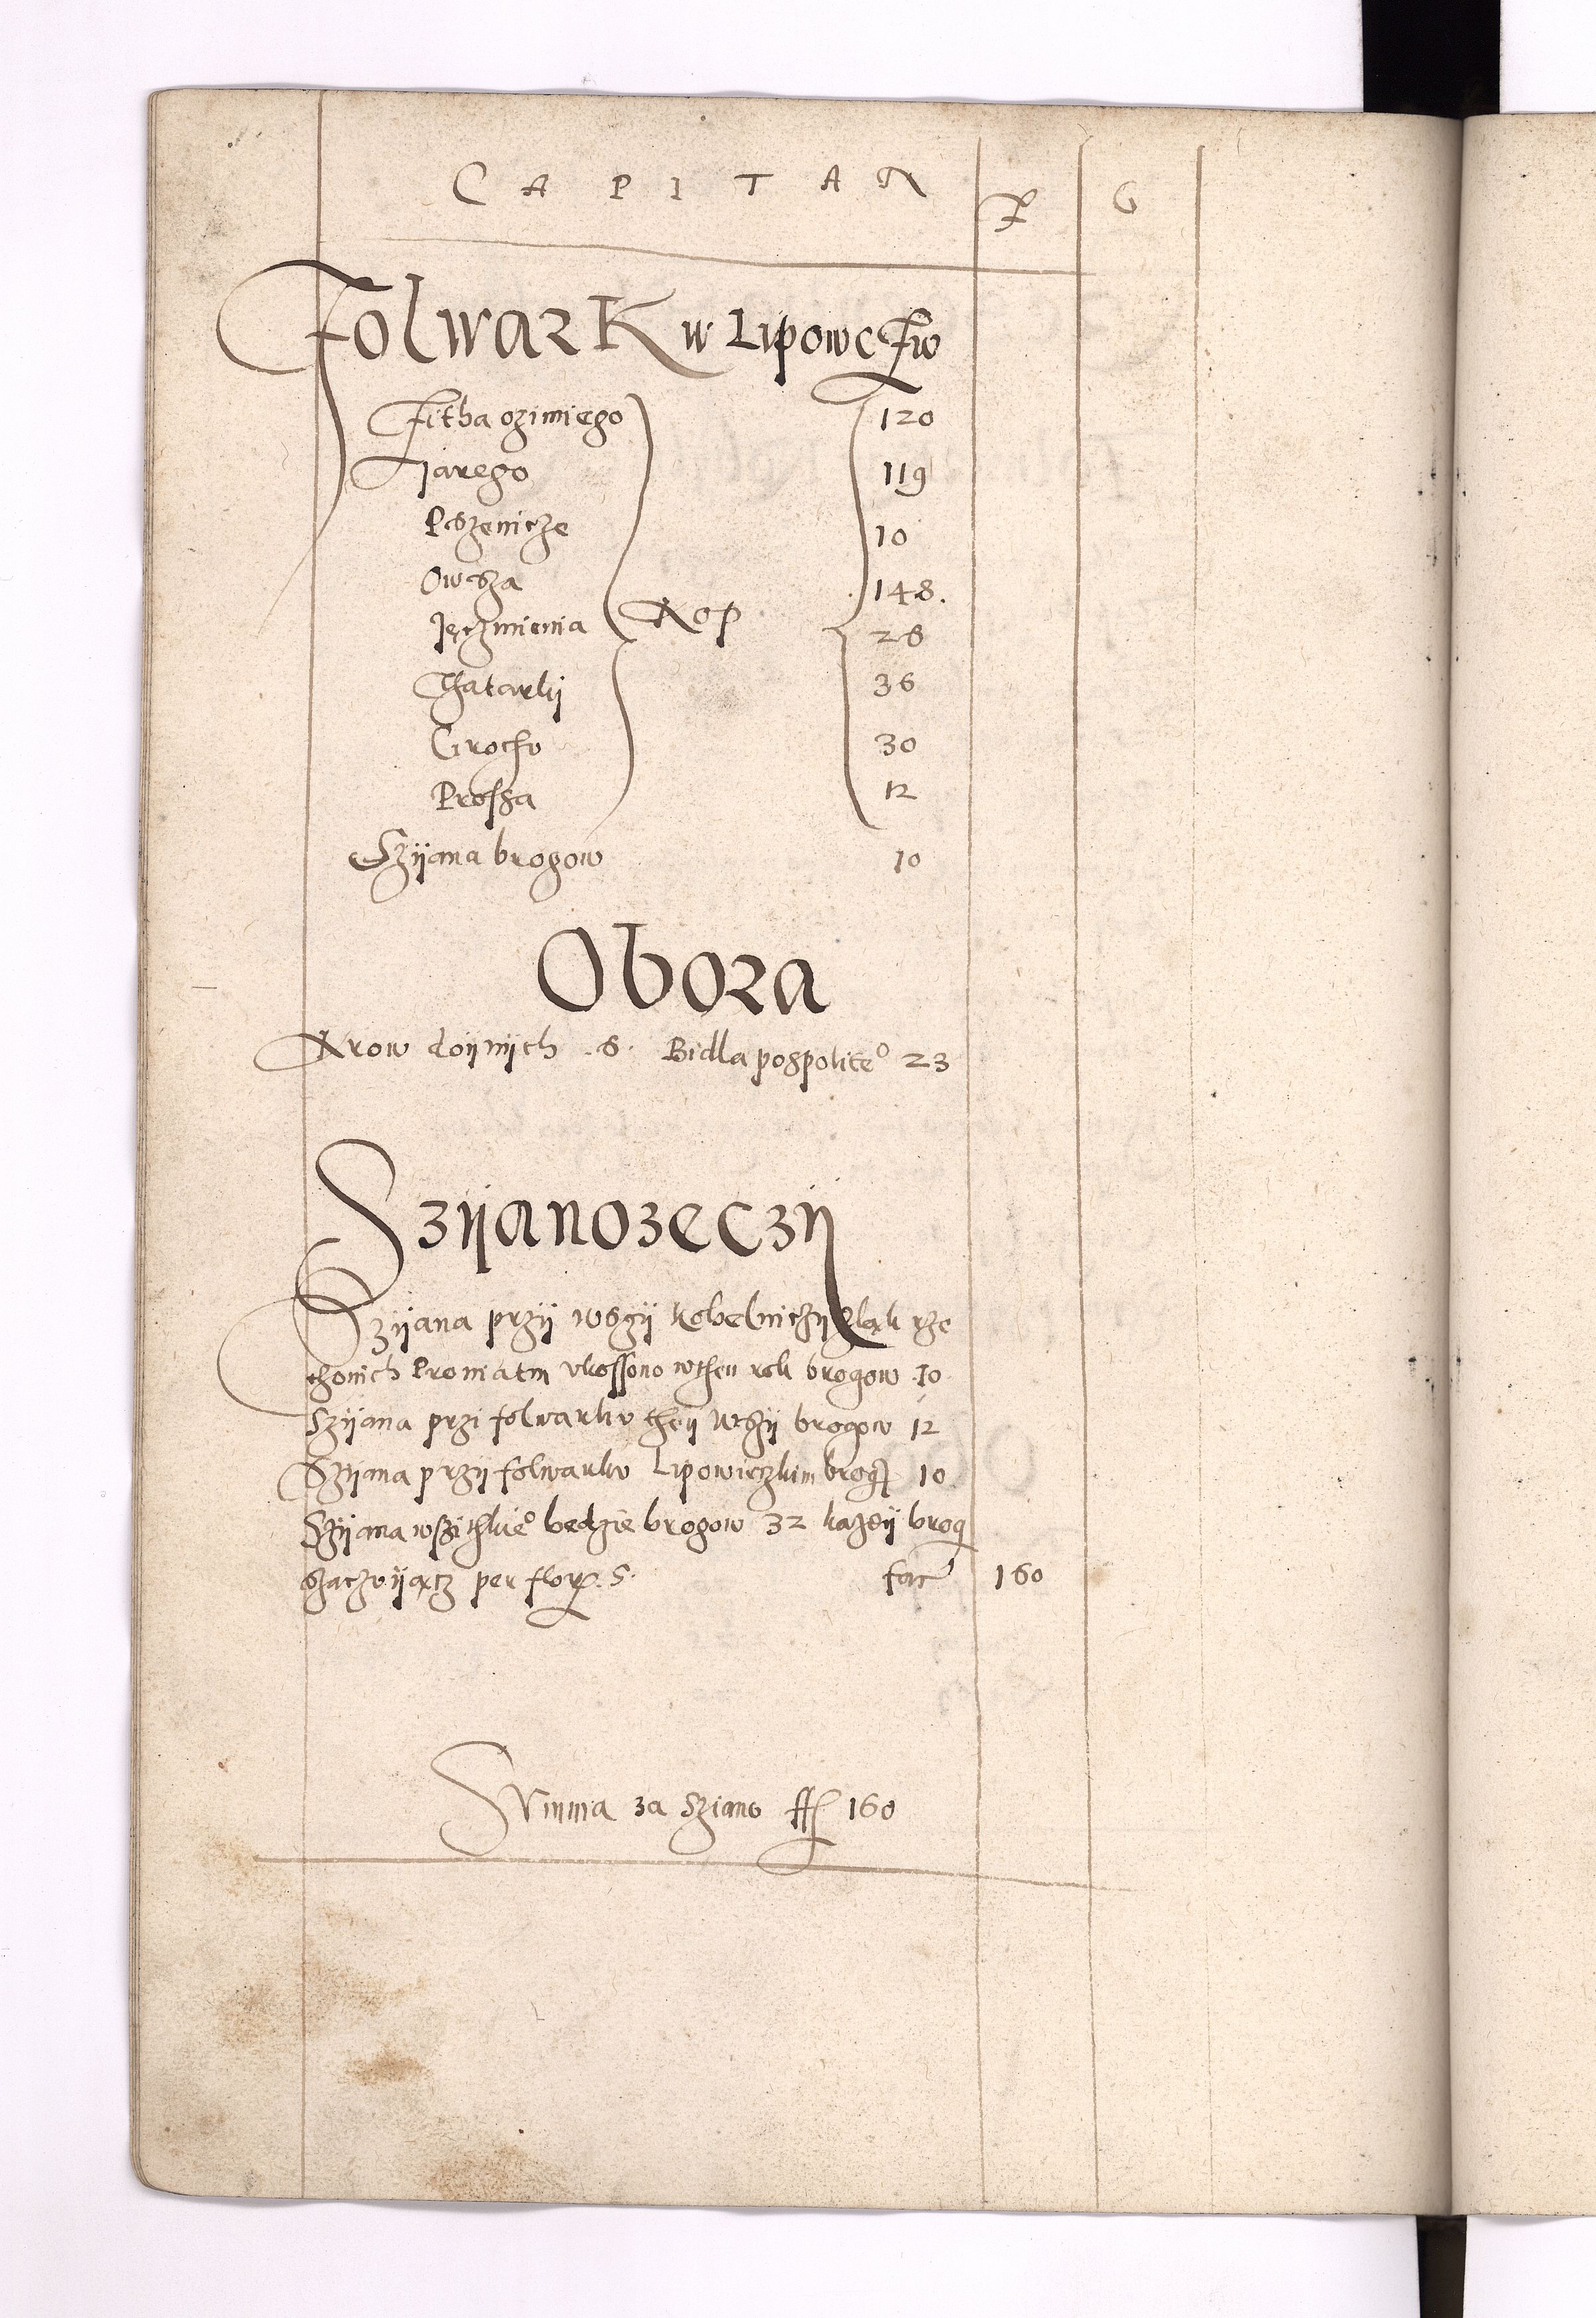 CAPITAN F G
Folwark w Lipowczw
Zitha ozimiego 120
Jarego 119
Pszenicze 10
Owsza 148.
Jęczmienia Kop 28
Thatarkij 36
Grochv 30
Prossa 12
Szijana brogow 10
Obora
Krow doijnijch .8. Bidla pospolite° 23
Szijanozeczij
Szijana przij wszij Kobelniczij
vkossono wthen rok brogow 10
Szijana przi folwarkv theij wszij brogow 12
Szijana przij folwarkv Lipowiczkim brog 10
Szijana wszithkie° bedzie brogow 32 kazdij brog
szaczvijącz per flor. 5. fac 160
Svmma za Sziano ff 160